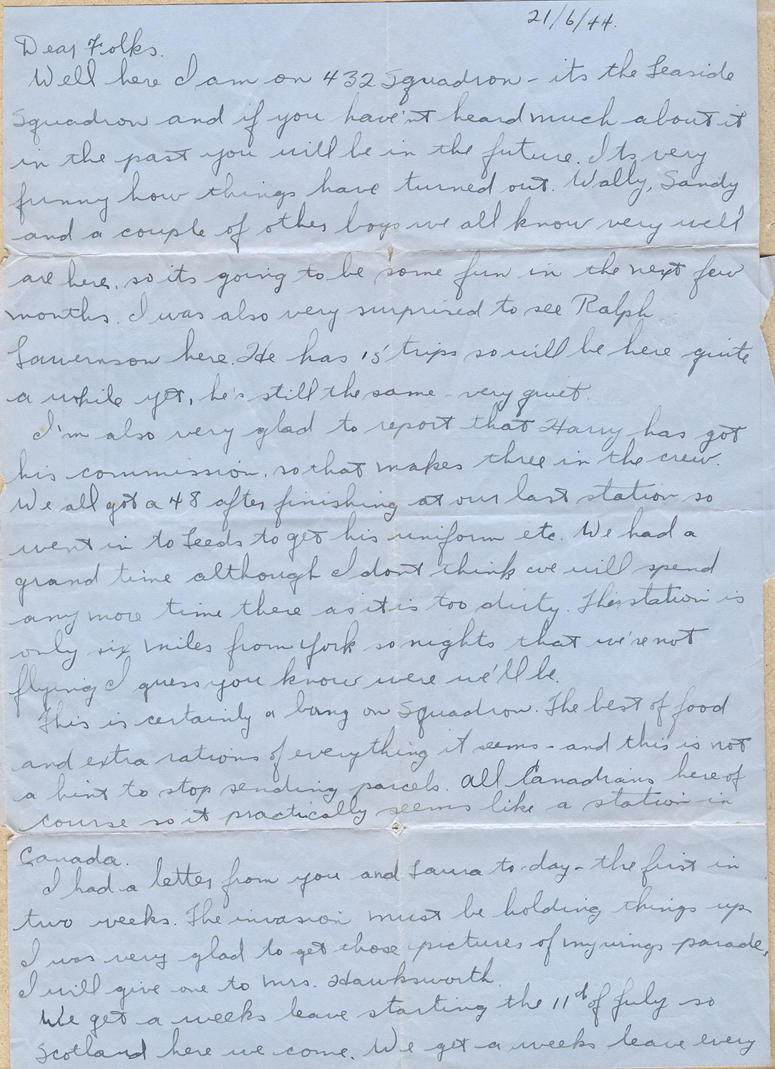 21/6/44.
Dear Folks.
Well here I am on 432 Squadron - its the Leaside
Squadron and if you have'nt heard much about it
in the past you will be in the future. Its very
funny how things have turned out. Wally, Sandy
and a couple of other boys we all know very well
are here, so its going to be some fun in the next few
months. I was also very surprised to see Ralph
here. He has 15 trips so will be here quite
a while yet, he's still the same - very quiet.
I'm also very glad to report that Harry has got
his commission, so that makes three in the crew.
We all got a 48 after finishing at our last station so
went in to Leeds to get his uniform etc. We had a
grand time although I don't think we will spend
any more time there as it is too dirty. This station is
only six miles from York so nights that we're not
flying I guess you know were we'll be.
This is certainly a bang on Squadron. The best of food
and extra rations of everything it seems - and this is not
a hint to stop sending parcels. All Canadians here of
course so it practically seems like a station in
Canada.
I had a letter from you and Laura to-day - the first in
two weeks. The invasion must be holding things up
I was very glad to get those pictures of my wings parade,
I will give one to Mrs. Hawksworth.
We get a weeks leave starting the 11th of July so
Scotland here we come. We get a weeks leave every